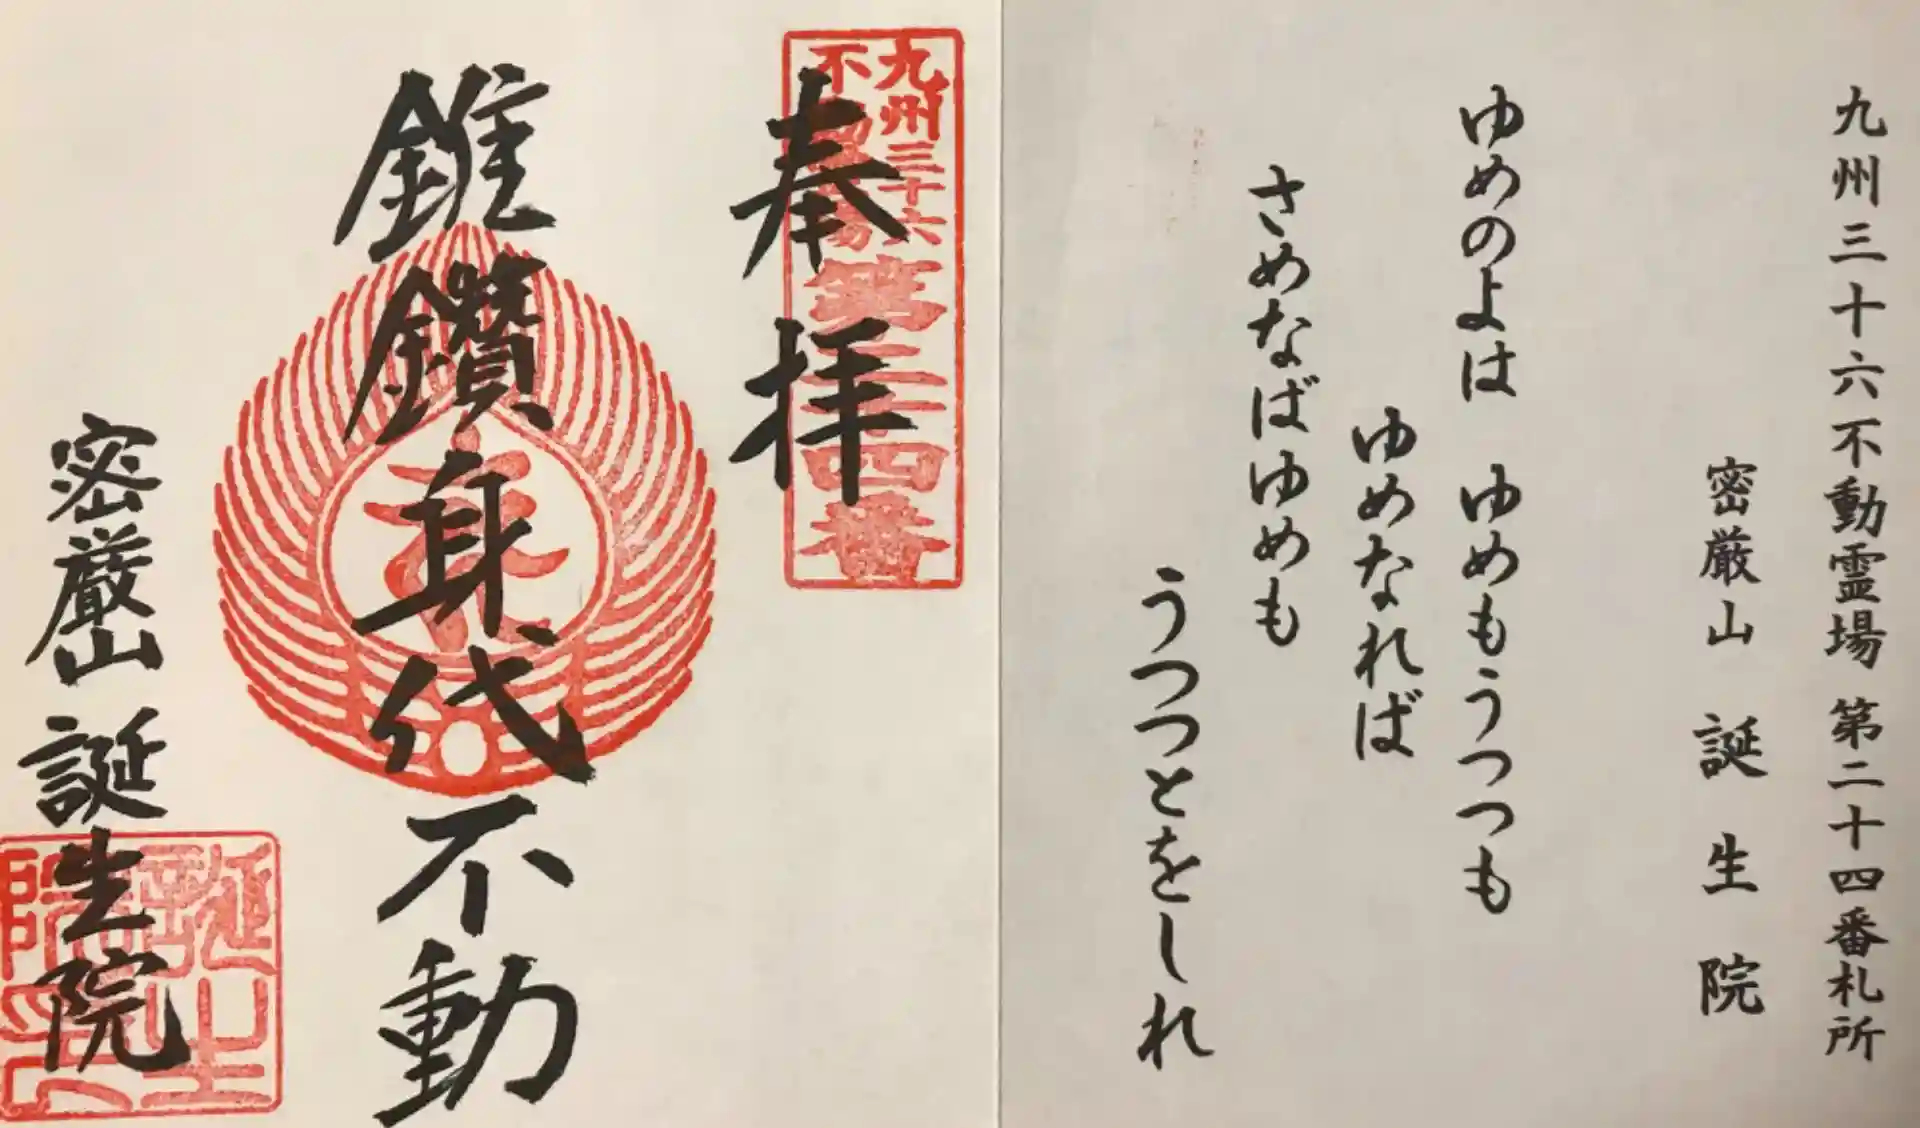 九州三十六不動霊場 第二十四番札所
密厳山 誕生院
ゆめのよは ゆめもうつつも
ゆめなれば
さめなばゆめも
うつつとをしれ
九州三十六
不動霊場
第二十四番
奉拝
錐鑽身代不動
密厳山 誕生院
誕生
院